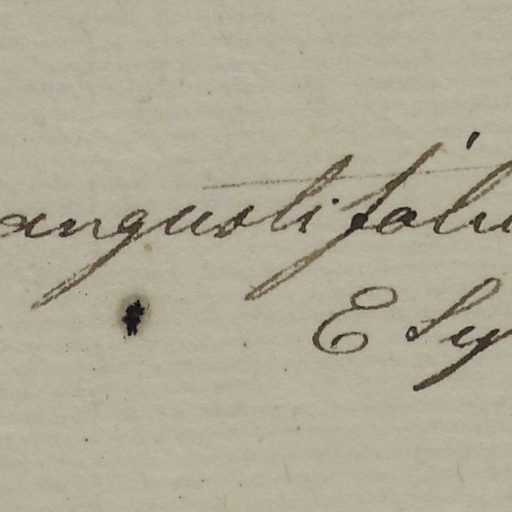 angustifoliu
E Sy